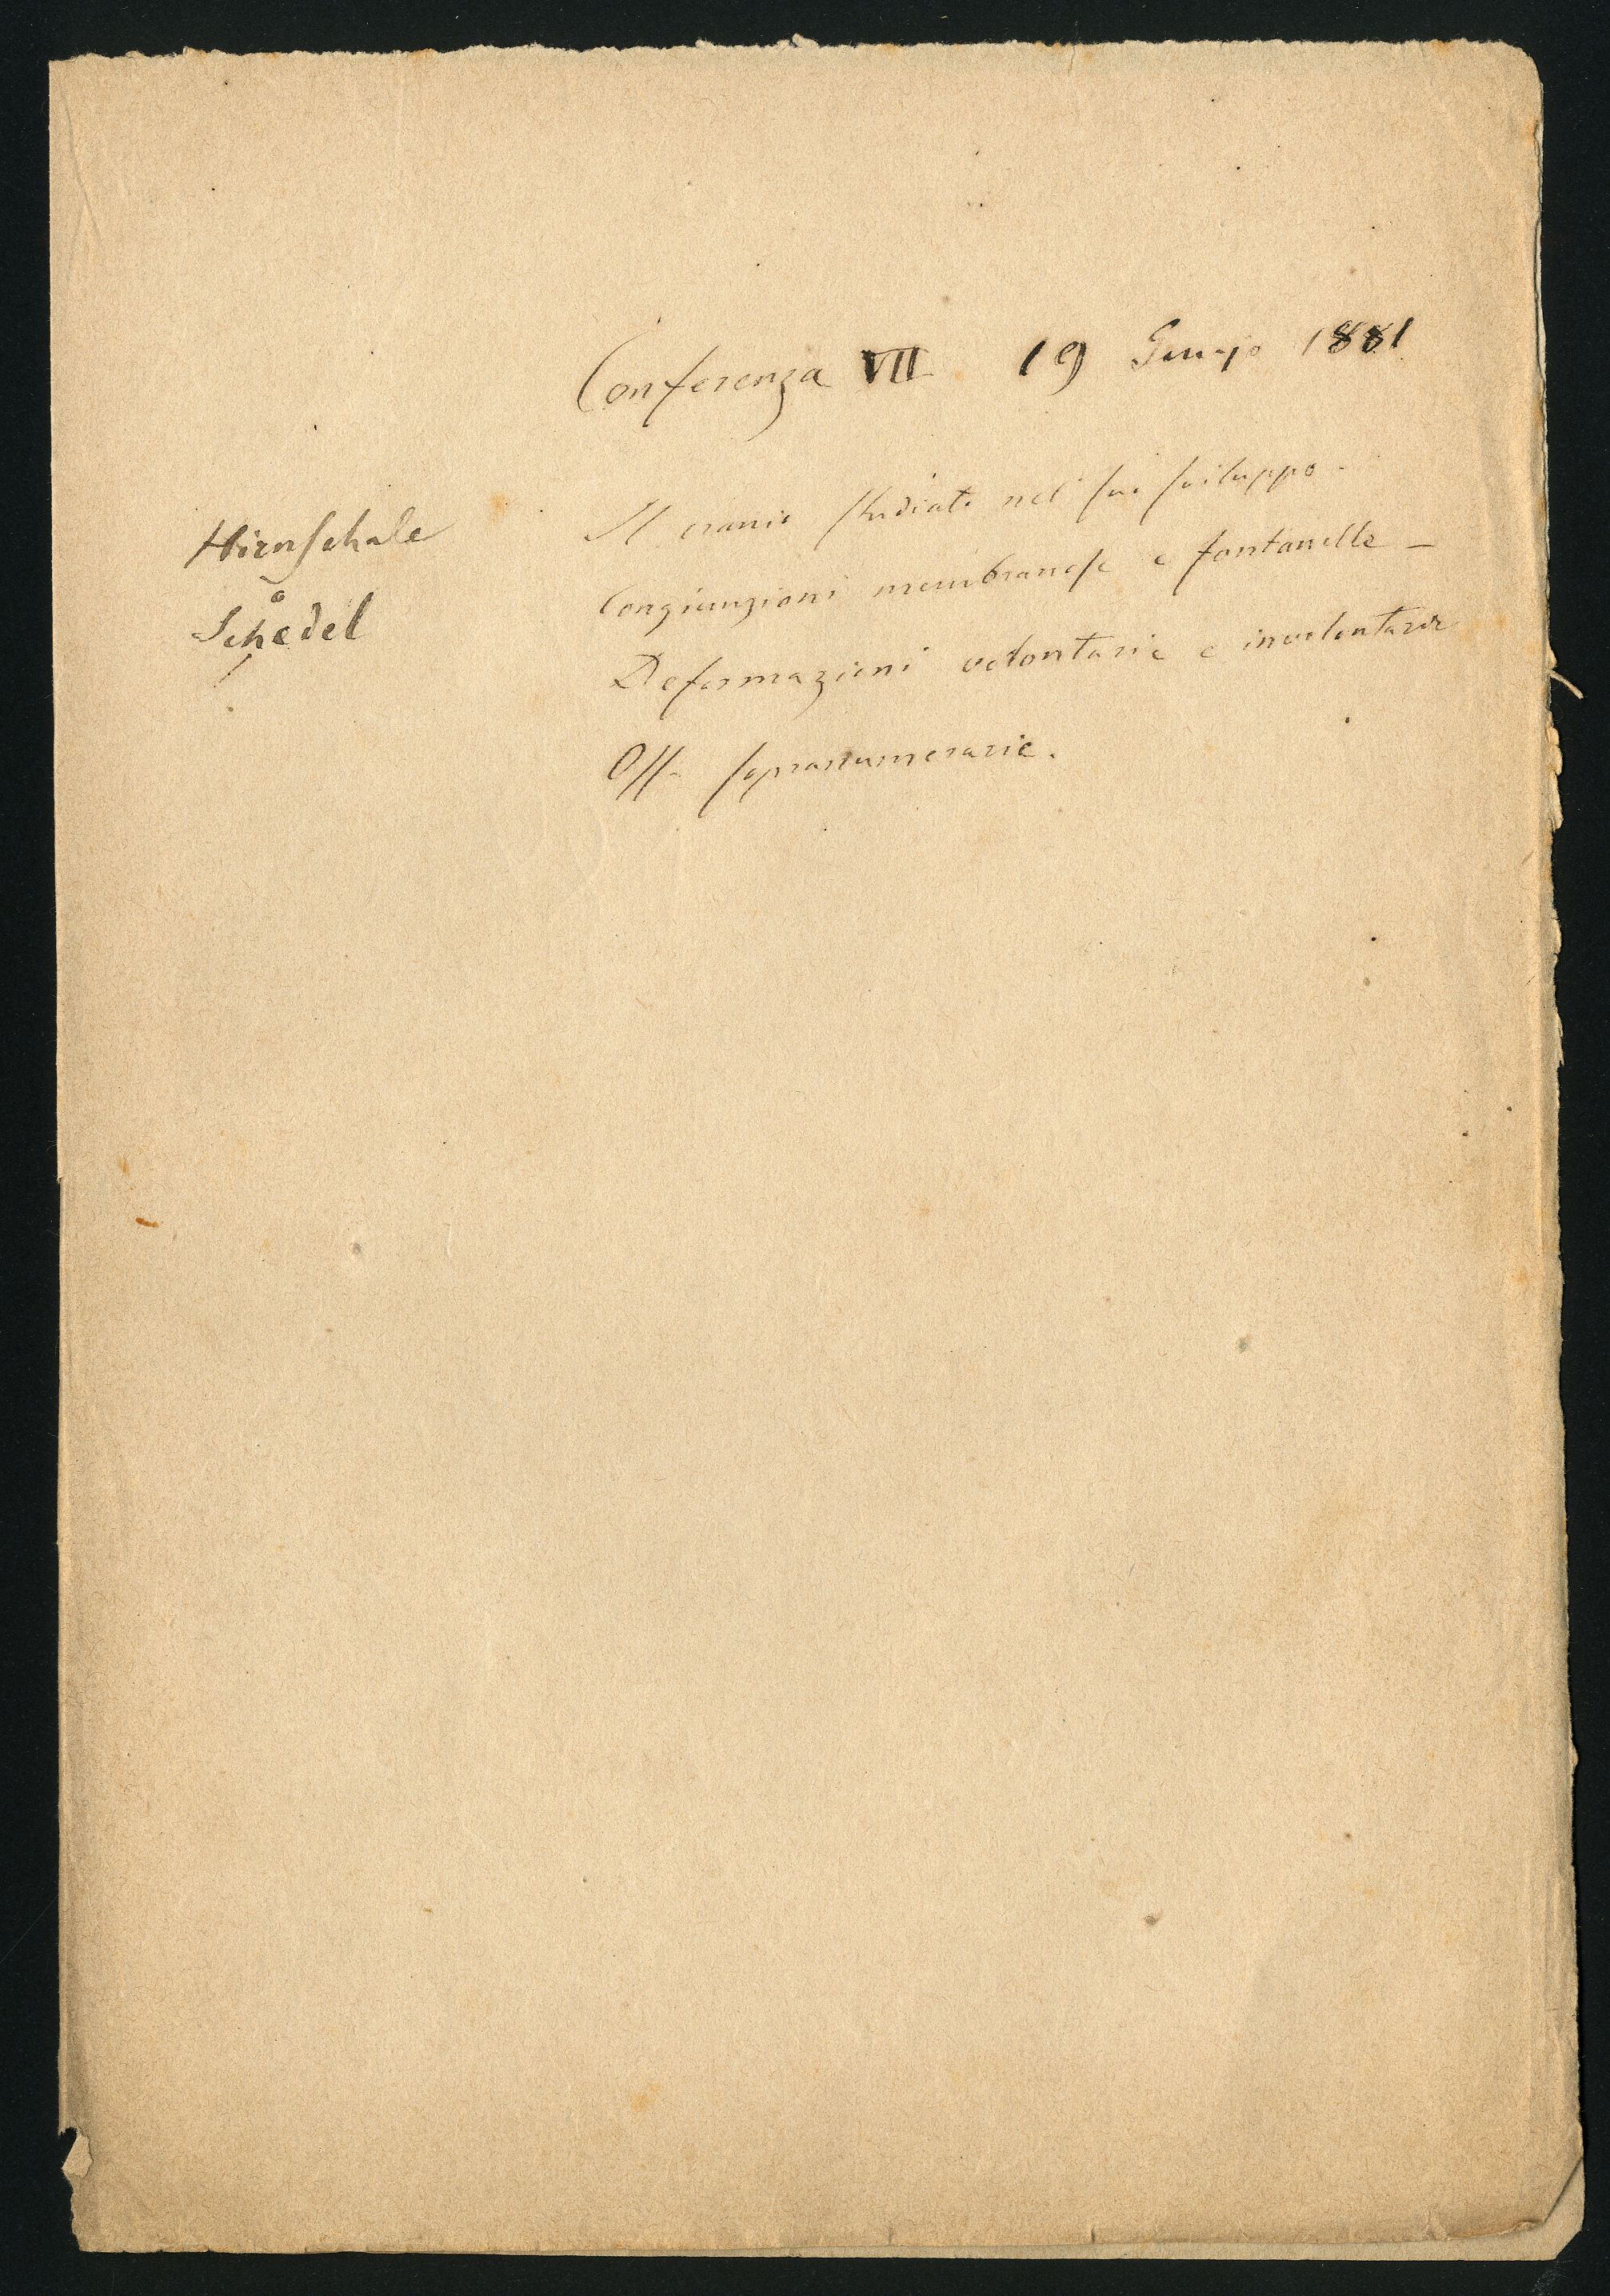 Conferenza VII 19 Gennajo 1881
Il cranio studiato nel suo sviluppo.
Congiunzioni membranose e fontanelle –
Deformazioni volontarie e involontarie
Ossa soprannumerarie.
Hirnschale
o
Schedel